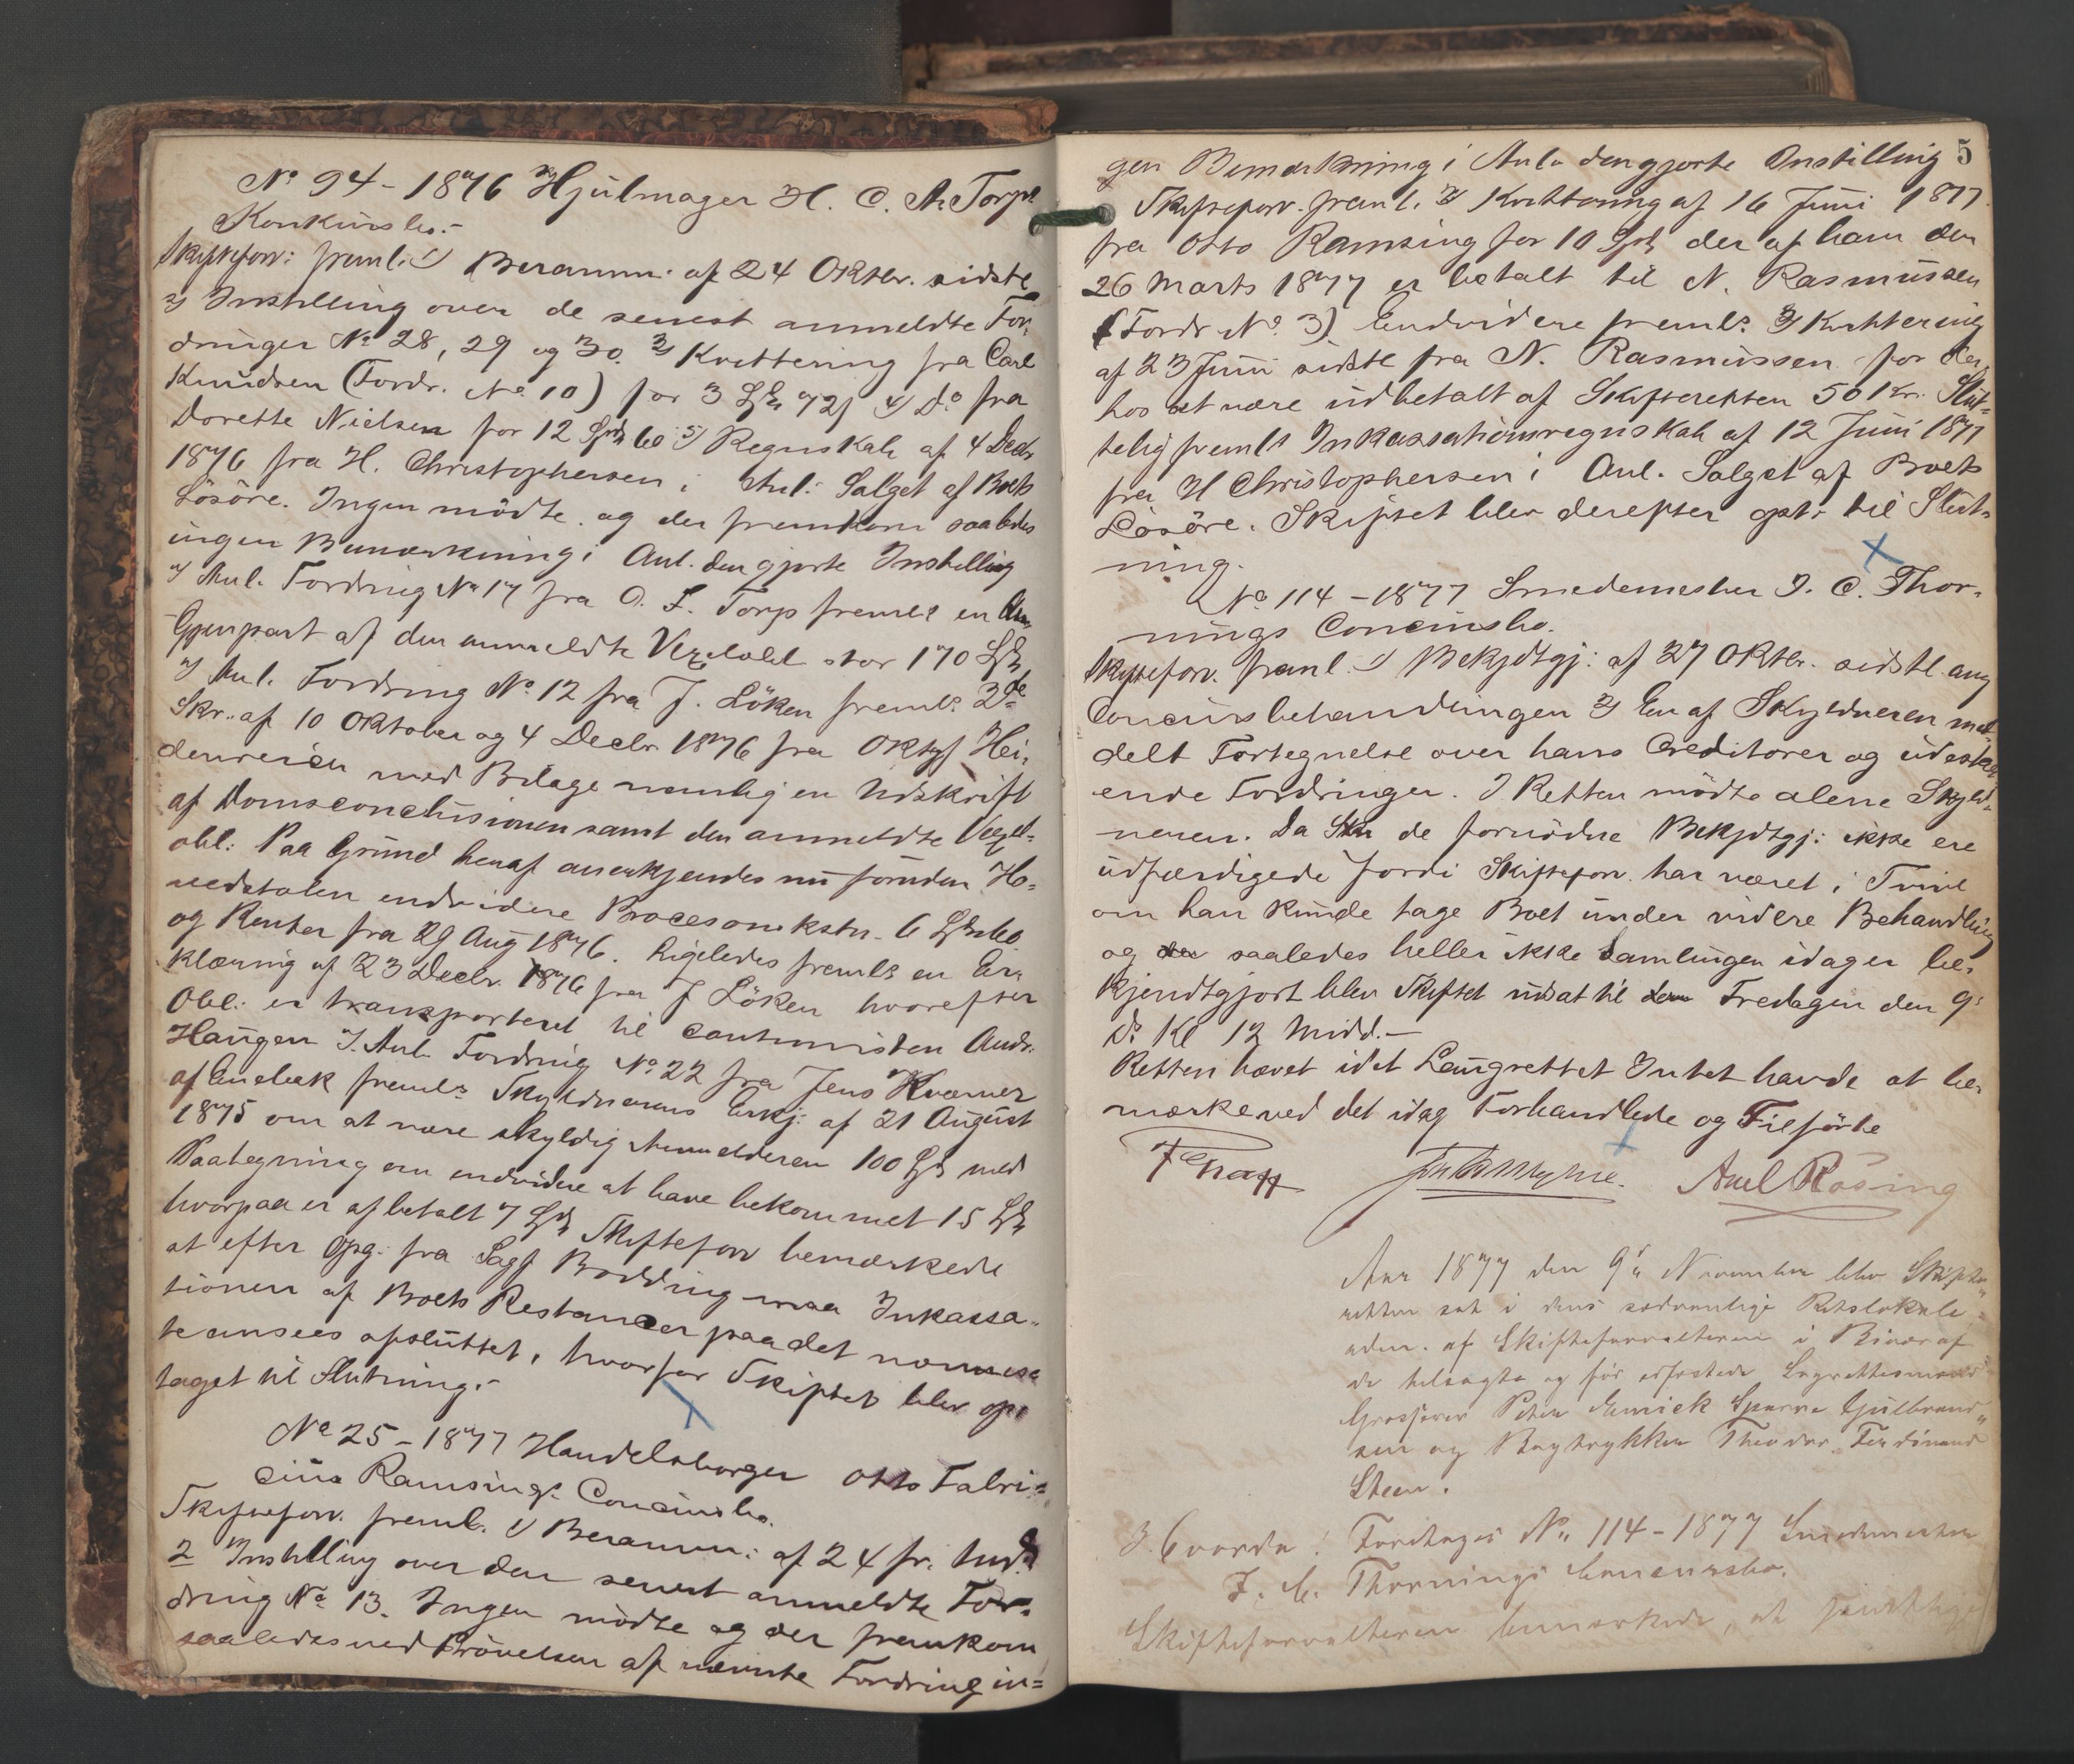 No 94 - 1876 Hjulmager H. C. A. Torps
Konkursbo.-
Skiftefov: freml: 1) Beramm: af 24 Oktbr. sidste
2) Instilling over de senest anmeldte For-
dringer No 28, 29 og 30. 3) Kvittering fra Carl
Knudsen (Fordr. No 10) for 3 Spd 72 s 4) Do fra
Dorette Nielsen for 12 Spd 60 5) Regnskab af 4 Decbr
1876 fra H. Christophersen i Anl: Salget af Boets
Lösöre. Ingen mödte og der fremkom saaledes
ingen Bemærkning i Anl. den gjorte Instilling
Anl. Fordring No 17 fra O. L. Torp fremls en
Gjenpart af den anmeldte Vexelobl stor 170 Spd
Anl. Fordring No 12 fra J. Löken fremls 2de
Skr. af 10 Oktober og 4 Decbr 1876 fra ORsagf Hei-
denreich med Bilage nemlig en Udskrift
af Domsconclusionen samt den anmeldte Vexel-
obl: Paa Grund heraf anerkjendes nu foruden Ho-
vedstolen endvidere Procesomkstn. 6 Spd 60
og Renter fra 29 Aug 1876. Ligeledes fremls en Er-
klæring af 23 Decbr 1876 fra J Löken hvorefter
Obl: er transporteret til Cautionisten Andr.
Haugen I Anl. Fordring No 22 fra Jens Kværner
af Enebak fremls Skyldnerens Erkj: af 21 August
1875 om at være skyldig Anmelderen 100 Spd med
Paategning om endvidere at have bekommet 15 Spd
hvorpaa er afbetalt 7 Spd Skiftefov bemærkede
at efter Opg: fra Sagf Bødding maa Inkassa-
tionen af Boets Restancer paa det nærmeste
te ansees afsluttet, hvorfor Skiftet blev op-
taget til Slutning.-
No 25 - 1877 Handelsborger Otto Fabri-
cius Ramsings Concursbo.
Skiftefov. freml. 1) Beramm: af 24 fr. Md
2 Instilling over den senest anmeldte For-
dring No 13. Ingen mödte og der fremkom
saaledes ved Prövelsen af nævnte Fordring in-
5
gen Bemærkning i Anl. den gjorte Instilling
Skiftefov. freml. 3) Kvittering af 16 Juni 1877
fra Otto Ramsing for 10 Spd der af ham den
26 Marts 1877 er betalt til N. Rasmussen
(Fordr No 3) Endvidere fremls 4) Kvittering
af 23 Juni sidste fra N. Rasmussen for der
hos at være udbetalt af Skifteretten 50 Kr. Slut-
telig fremls Inkassationsregnskab af 12 Juni 1877
fra H Christophersen i Anl. Salget af Boets
Lösöre. Skiftet blev derefter opt. til Slut-
ning.
No 114 - 1877 Smedemester J. C. Thor-
nings Concursbo.
Skiftefov. freml. 1) Bekjdtgj: af 27 Oktbr. sidstl. ang
Concursbehandlingen 2) En af Skyldneren med-
delt Fortegnelse over hans Creditorer og udestaa-
ende Fordringer. I Retten mödte alene Skyld-
neren. Da de fornödne Bekjdtgj: ikke ere
udfærdigede fordi Skiftefov. har været i Tvivl
om han kunde tage Boet under videre Behandling
og saaledes heller ikke Samlingen idag er be-
kjendtgjort blev Skiftet udsat til Fredagen den 9
ds Kl 12 Midd.-
Retten hævet idet Laugrettet Intet havde at be-
mærke ved det idag Forhandlede og Tilförte
Axel Rösing
Aar 1877 den 9de November blev Skifte-
retten sat i dens sædvanlige Retslokale
adm. af Skifteforvalteren i Biværaf
de tilsagte og før edfæstede Lagrettesmænd
Grosserer Peter Sparre Gulbrand-
sen og Bogtrykker Theodor Ferdinand
Steen.
Hvorda: Foretoges No 114 - 1877 Smedemester
J. C. Thornings Concursbo.
Skifteforvalteren bemærkede, at